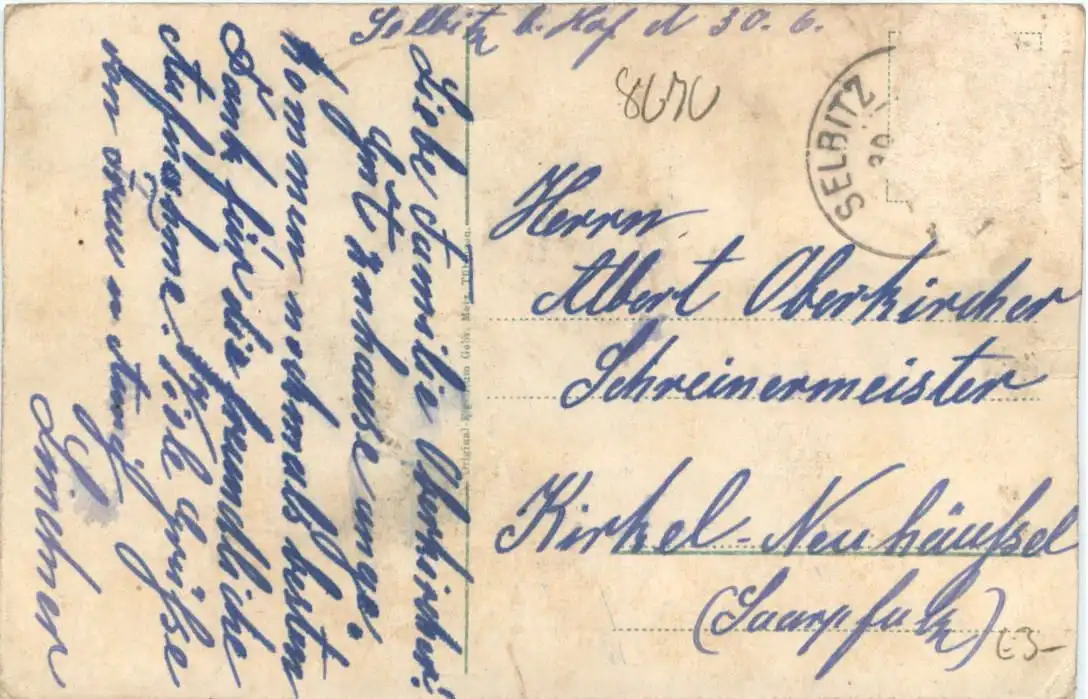 Selbitz b. Hof d 30. 6.
Liebe Familie Oberkircher!
Gut zuhause ange-
kommen nochmals besten
Dank für die freundliche
Aufnahme. Viele Grüße
von
8670
SELBITZ
30
Herrn
Albert Oberkircher
Schreinermeister
Kirkel-Neuhäußel
(Saarpfalz)
Original-Eigentum Gebr. Metz, Tübingen.
£3-